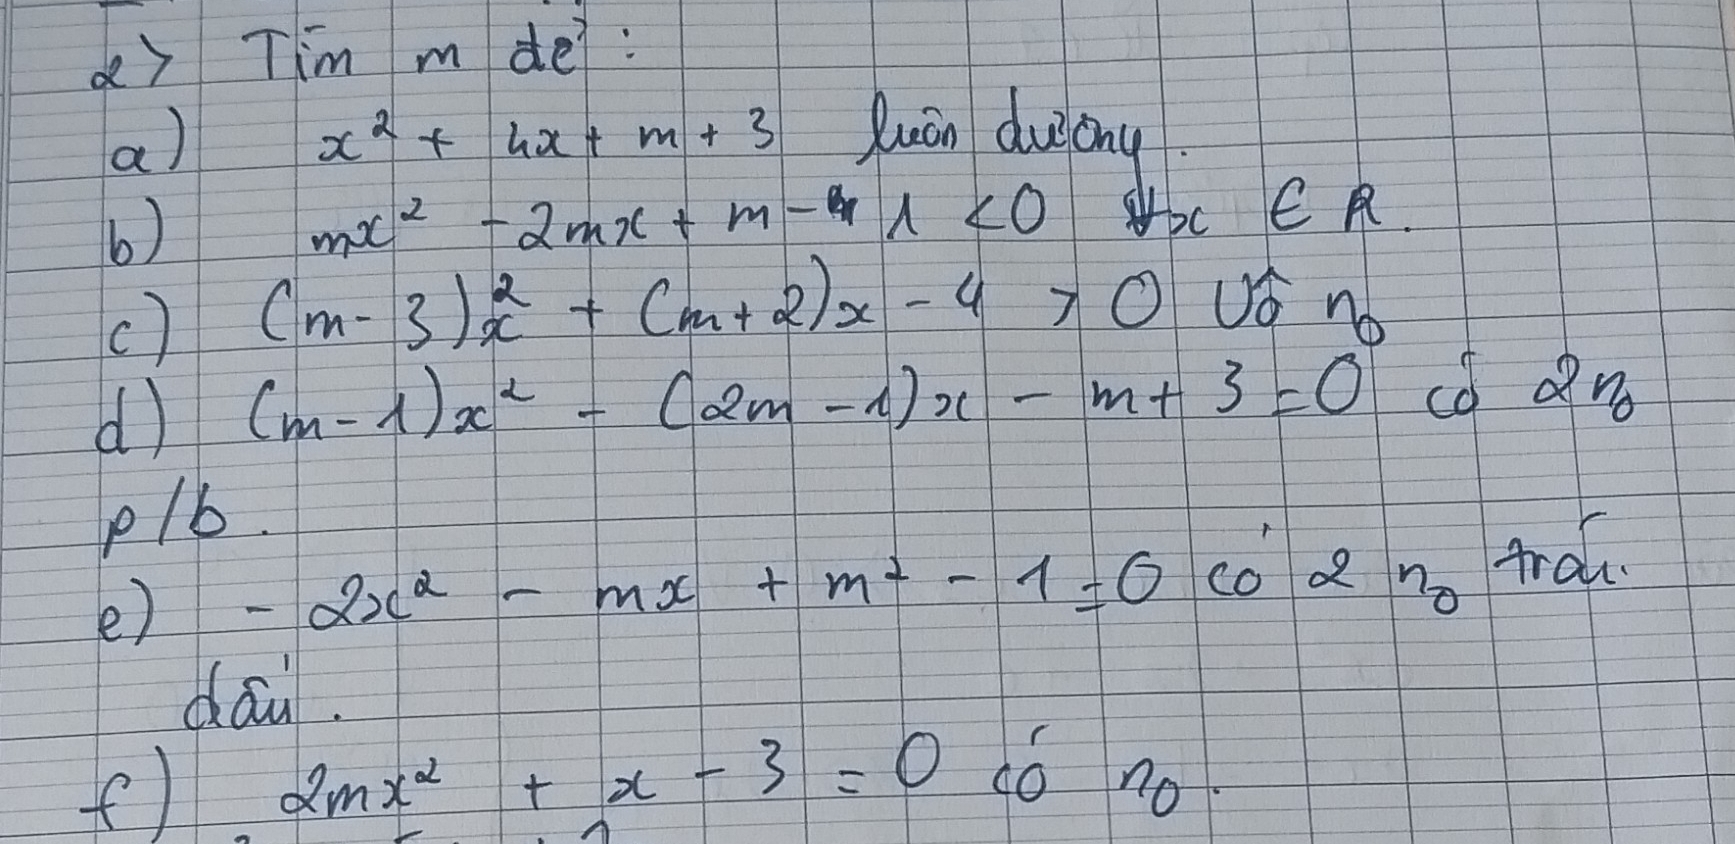 2> Tìm m để :
a) x² + 4x + m + 3 luôn dương.
b) mx² - 2mx + m - 1 < 0 ∀x ∈ R.
c) (m - 3)x² + (m + 2)x - 4 > 0 Vô n₀
d) (m - 1)x² - (2m - 1)x - m + 3 = 0 có 2 n₀
p/b.
e) - 2x² - mx + m² - 1 = 0 có 2 n₀ trái
dấu.
f) 2mx² + x - 3 = 0 có n₀.